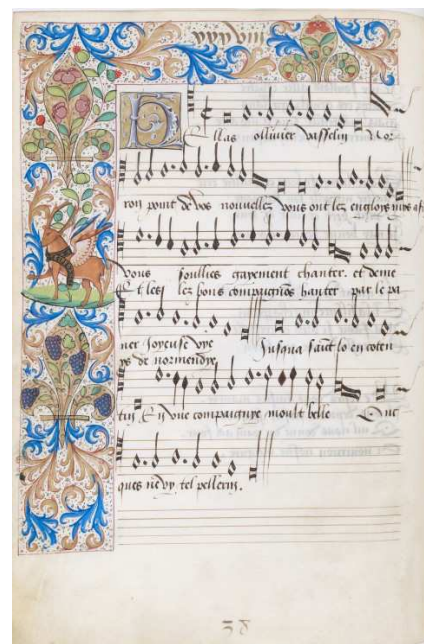 xxxviii
Hellas ollivier vasselin Nor
ron point de vos nouvellez vous ont lez engloys mys a fi
vous soullies gayement chanter. et deme
Et les lez bons compaignõs hanter par le pa
ner Joyeuse vye Jusqua saīt lo en coten
ys de normendye
tin En une compaignye moult belle Onc
ques ne vy tel pellerin.
38